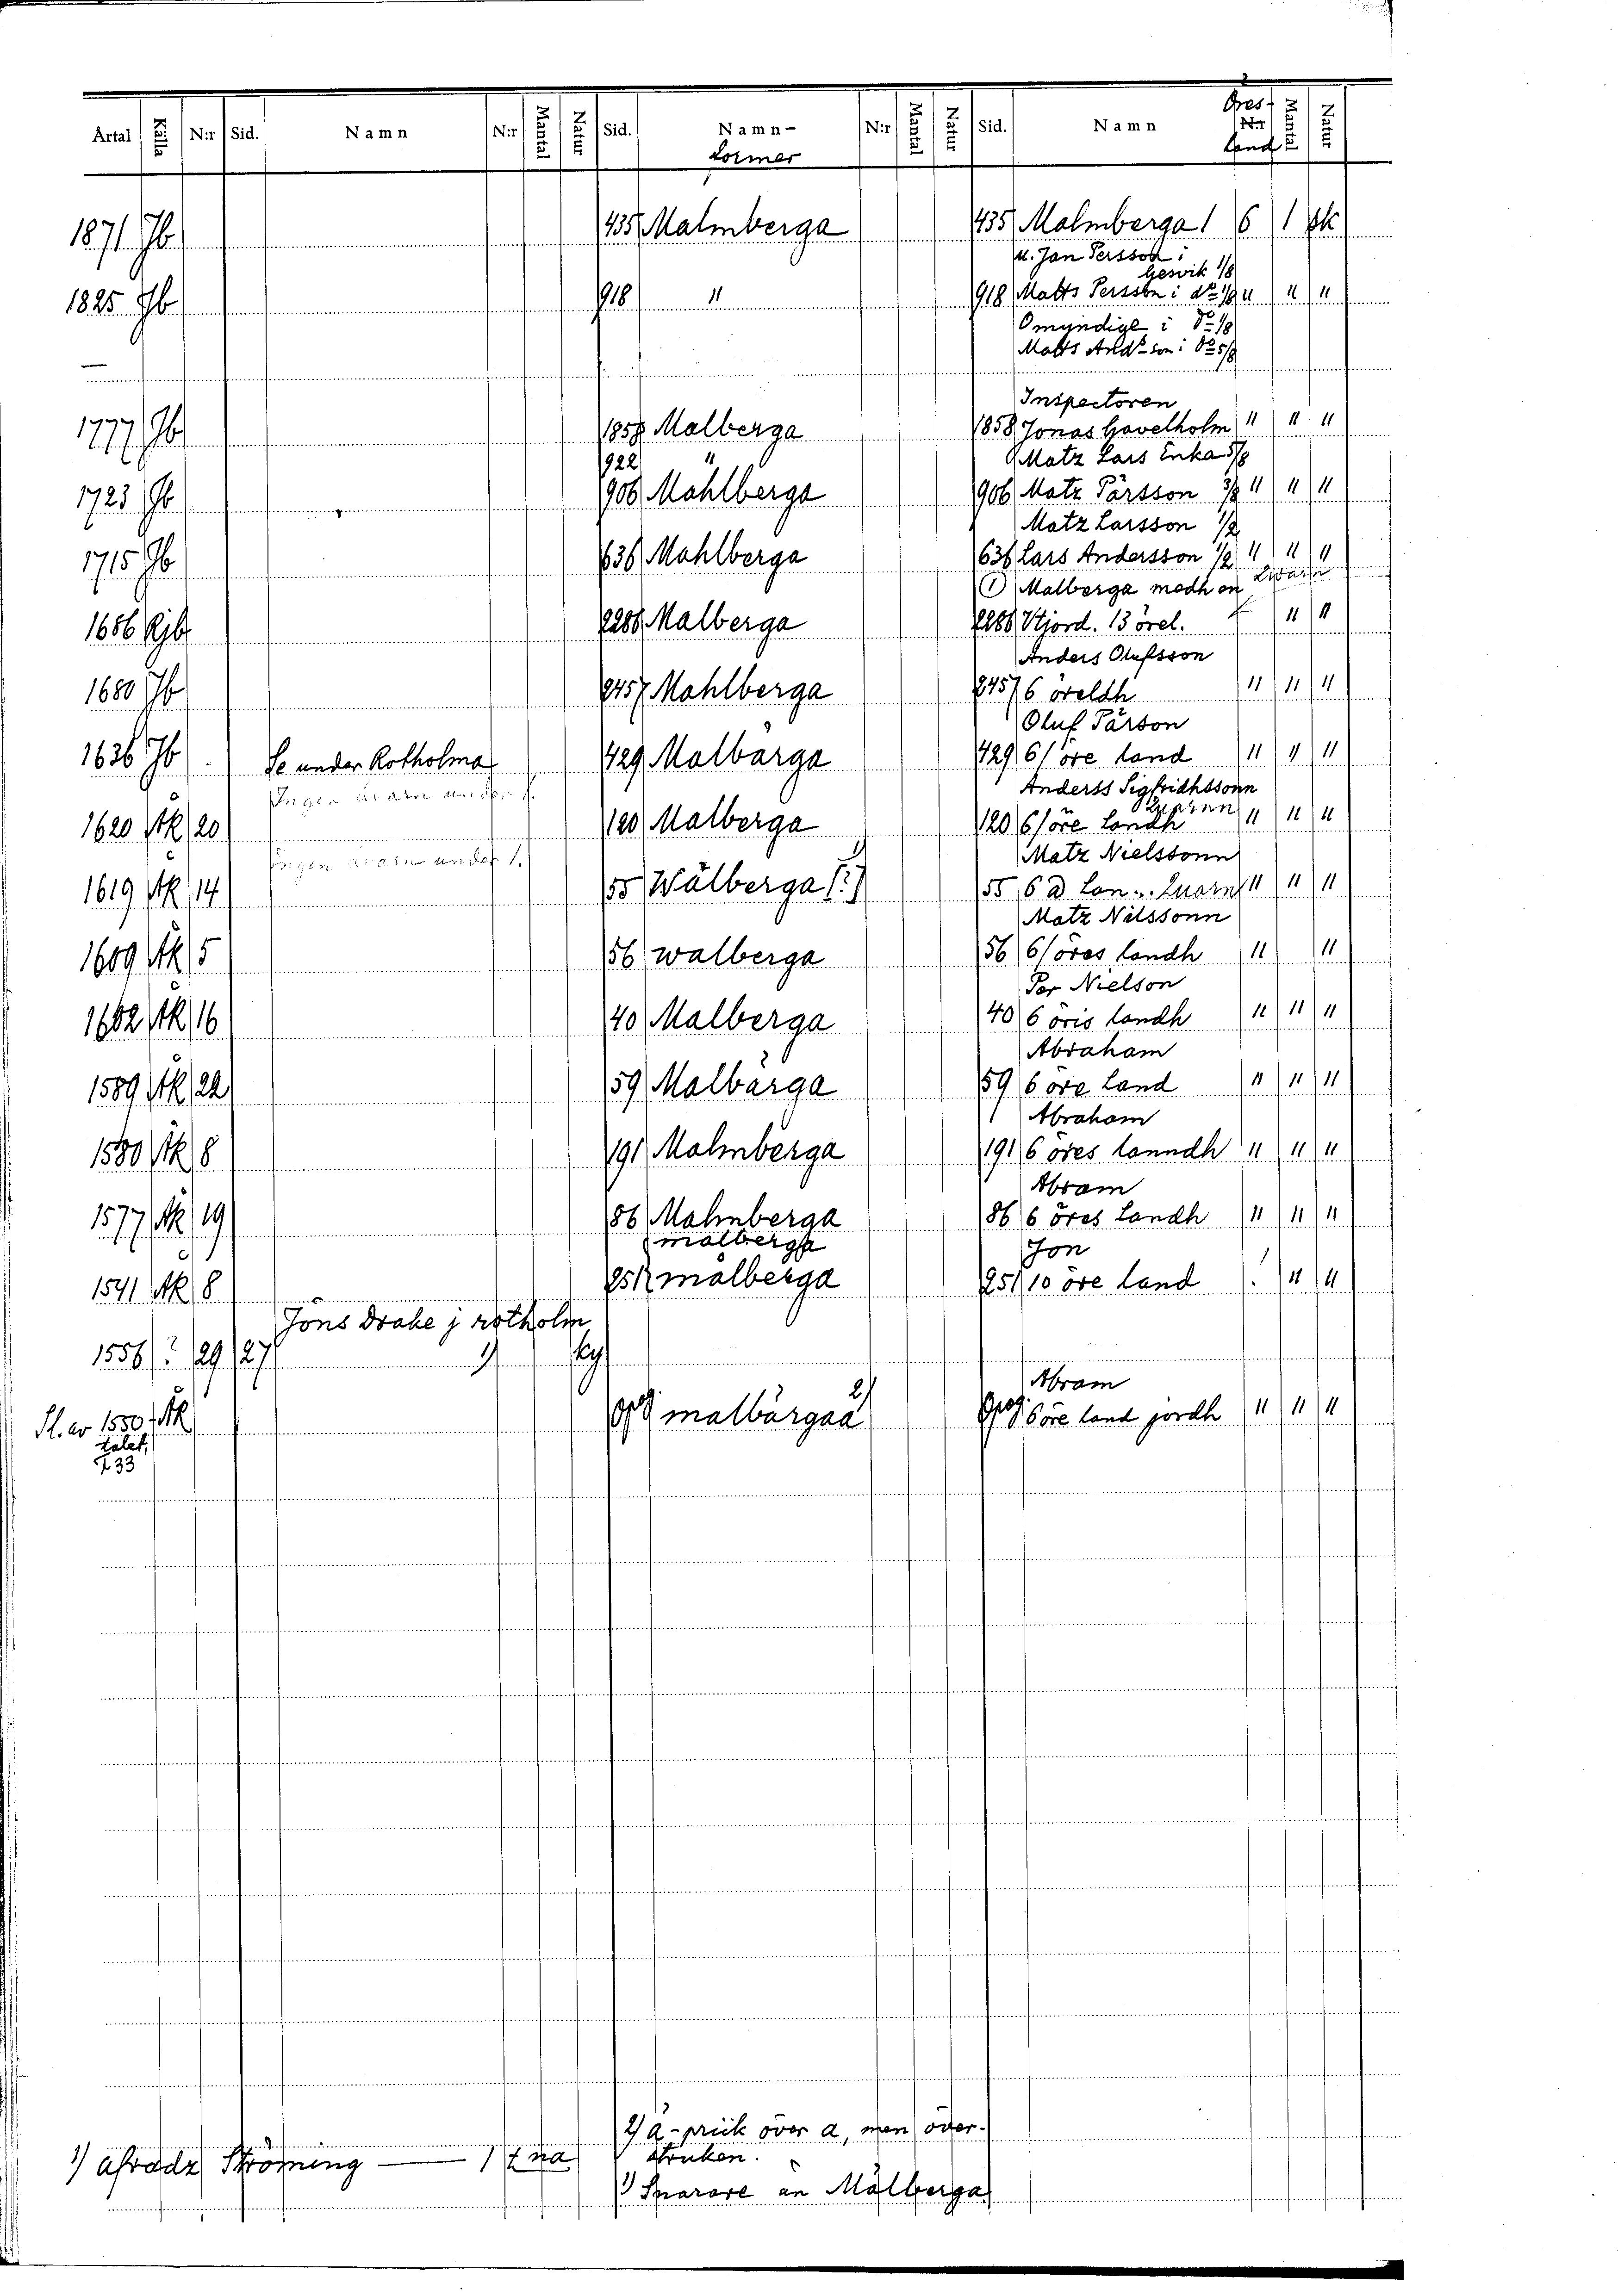 Årtal Källa N:r Sid. Namn N:r Mantal Natur Sid. Namn- N:r Mantal Natur Sid. Namn Öres- N:r Mantal Natur
former land
1871 Jb 435 Malmberga 435 Malmberga 1 6 1 sk
u. Jan Persson i
Gesvik 1/8
1825 Jb 918 " 918 Matts Persson i do 1/8 " " "
Omyndige i do 1/8
Matts Andson i do 5/8
Inspectoren
1777 Jb 1858 Malberga 1858 Jonas Gavelholm " " "
922 " Matz Lars Enka 5/8
1723 Jb 906 Mahlberga 906 Matz Pärsson 3/8 " " "
Matz Larsson 1/2
1715 Jb 636 Mahlberga 636 Lars Andersson 1/2 " " "
(1) Malberga medh en Qwarn
1686 Rjb 2286 Malberga 2286 Utjord. 13 örel. " "
Anders Olufsson
1680 Jb 2457 Mahlberga 2457 6 öreldh " " "
Oluf Pärson
1636 Jb Se under Rotholma 429 Malbärga 429 6/öre land " " "
Anderss Sigfridhssonn
Quarnn
1620 Åk 20 120 Malberga 120 6/öre Landh " " "
Matz Nielssonn
1619 Åk 14 55 Wålberga (?) 1) 55 6 Lan... Quarn " " "
Matz Nilssonn
1609 Åk 5 56 walberga 56 6/öres landh " "
Per Nielson
1602 Åk 16 40 Malberga 40 6 öris landh " " "
Abraham
1589 Åk 22 59 Malbärga 59 6 öre Land " " "
Abraham
1580 Åk 8 191 Malmberga 191 6 öres lanndh " " "
Abram
1577 Åk 19 86 Malmberga 86 6 öres Landh " " "
malberga Jon
1541 Åk 8 251 målberga 251 10 öre land " "
Jöns Drake j rotholm
1556 ? 29 27 1) sky
Abram
Sl. av 1550- Åk malbärgaa 2) 6 öre land jordh " " "
talet,
F 33
2) å-prick över a, men över-
1) afradz Strömming — 1 t:na struken.
1) Snarare än Målberga